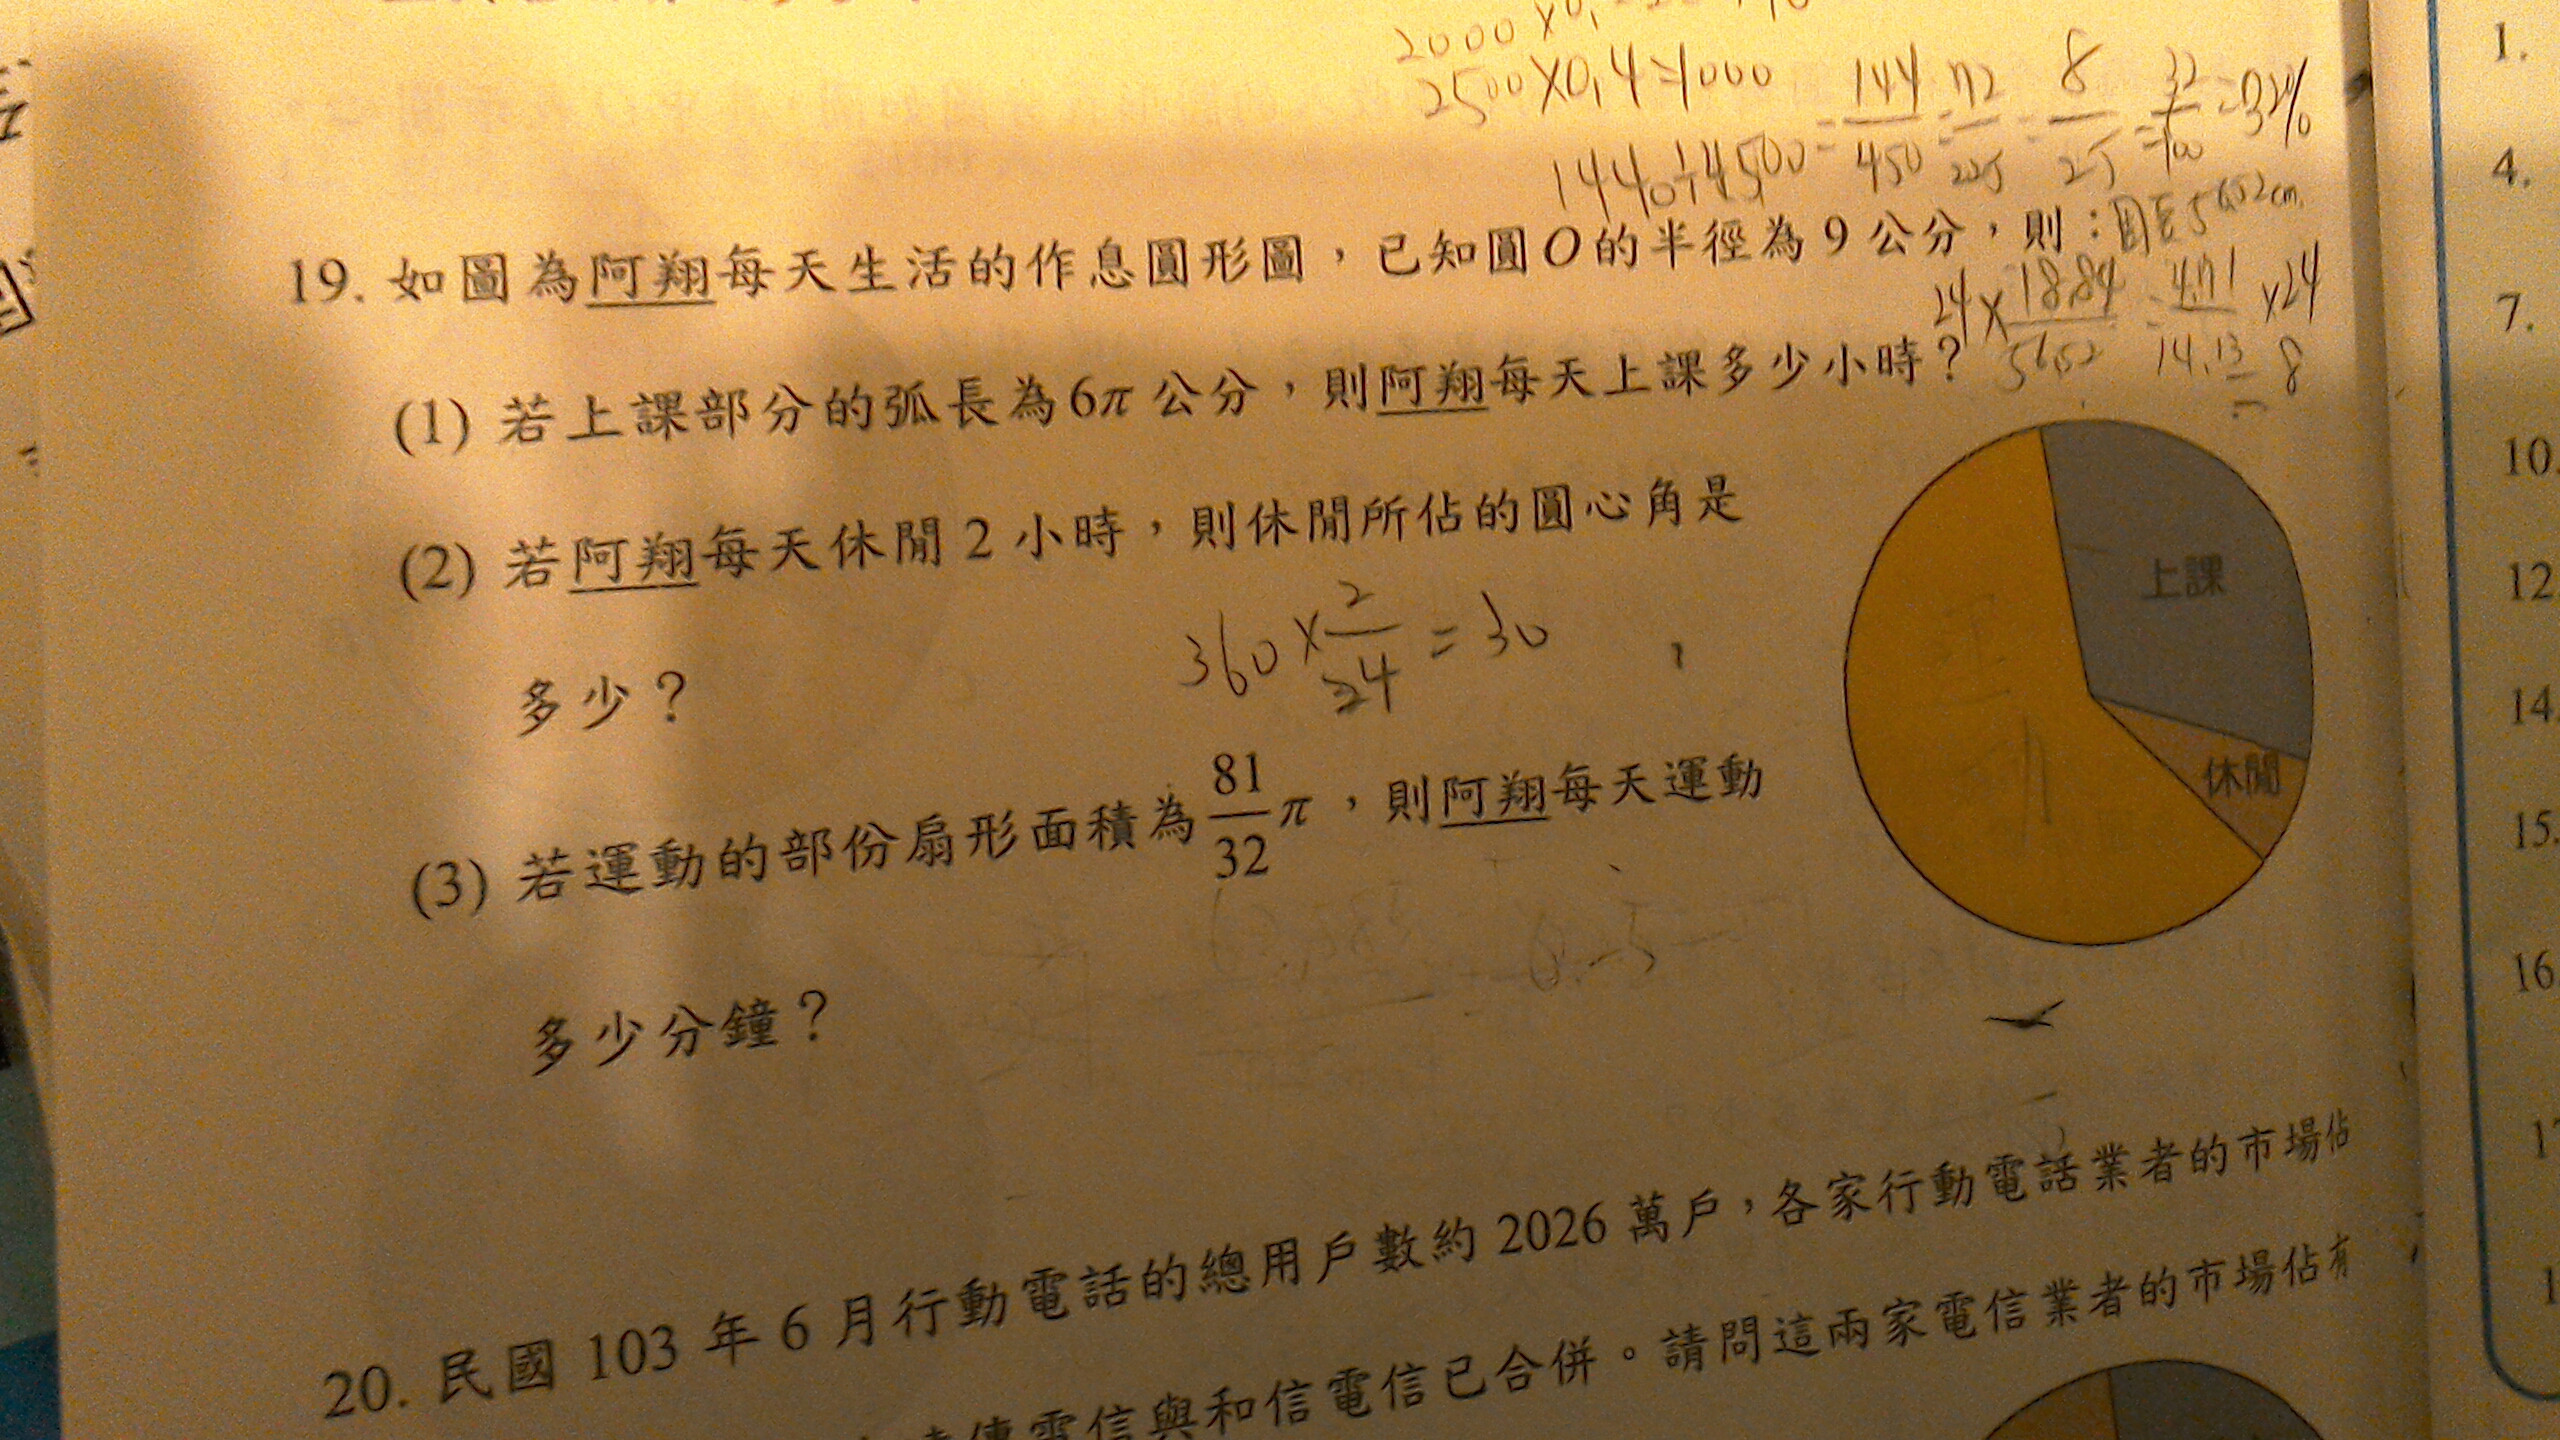 2500×0.4=1000
1440÷4500=144/450=72/225=8/25=32/100=32%
19. 如圖為阿翔每天生活的作息圓形圖，已知圓O的半徑為9公分，則：
24×18.84/56.52=4.71/14.13×24
=8
(1) 若上課部分的弧長為6π公分，則阿翔每天上課多少小時？
(2) 若阿翔每天休閒2小時，則休閒所佔的圓心角是
多少？
360×2/24=30
(3) 若運動的部份扇形面積為81/32π，則阿翔每天運動
多少分鐘？
上課
休閒
20. 民國103年6月行動電話的總用戶數約2026萬戶，各家行動電話業者的市場佔
電信與和信電信已合併。請問這兩家電信業者的市場佔有
1.
4.
7.
10.
12.
14.
15.
16